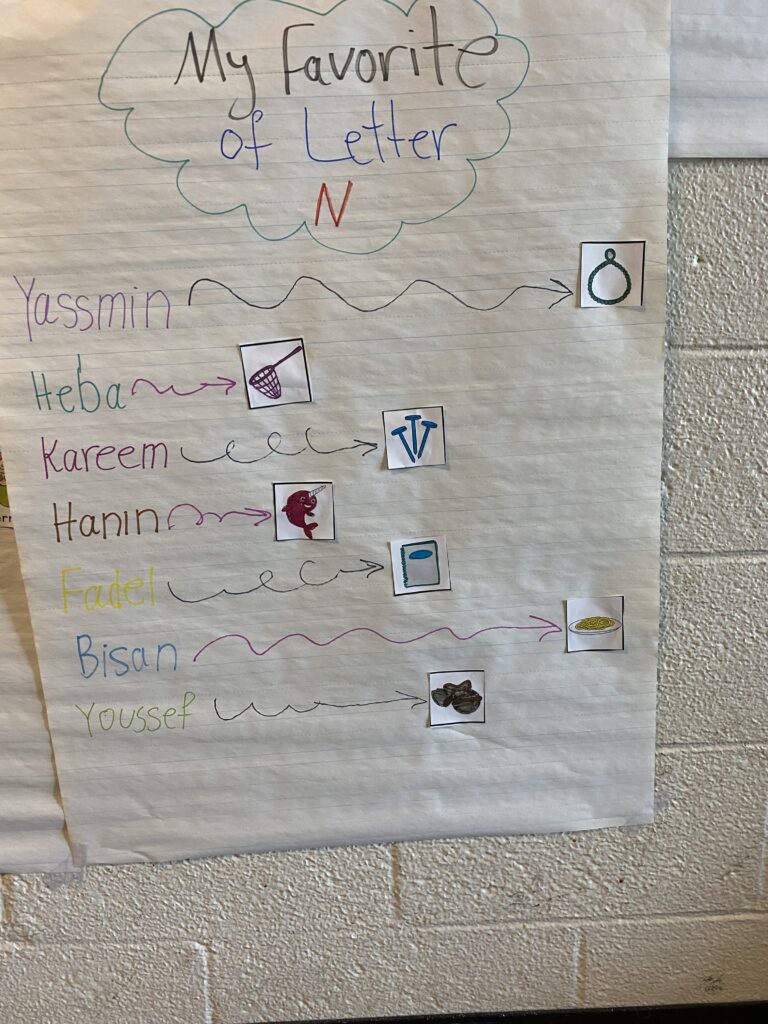 My Favorite
of Letter
N
Yassmin
Heba
Kareem
Hanin
Fadel
Bisan
Youssef